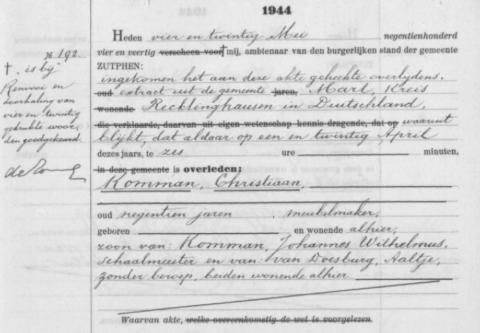 1944
Heden vier en twintig Mei negentienhonderd
№ 192.
vier en veertig verscheen voor † mij, ambtenaar van den burgerlijken stand der gemeente
ZUTPHEN:
† , is bij
Renvooi en
doorhaling van
vier en twintig
gedrukte woor-
den goedgekeurd.
ingekomen het aan deze akte gehechte overlydens.
oud extract uit de gemeente jaren, Marl, Kreis
wonende Recklinghausen in Duitschland,
die verklaarde, daarvan uit eigen wetenschap kennis dragende, dat op waaruit
blijkt, dat aldaar op een en twintig April
dezes jaars, te zes ure minuten,
in deze gemeente is overleden:
Komman, Christiaan,
oud negentien jaren, meubelmaker,
geboren en wonende alhier,
zoon van: Komman, Johannes Wilhelmus,
schaalmeester en van: van Doesburg, Aaltje,
zonder beroep, beiden wonende alhier
Waarvan akte, welke overeenkomstig de wet is voorgelezen.